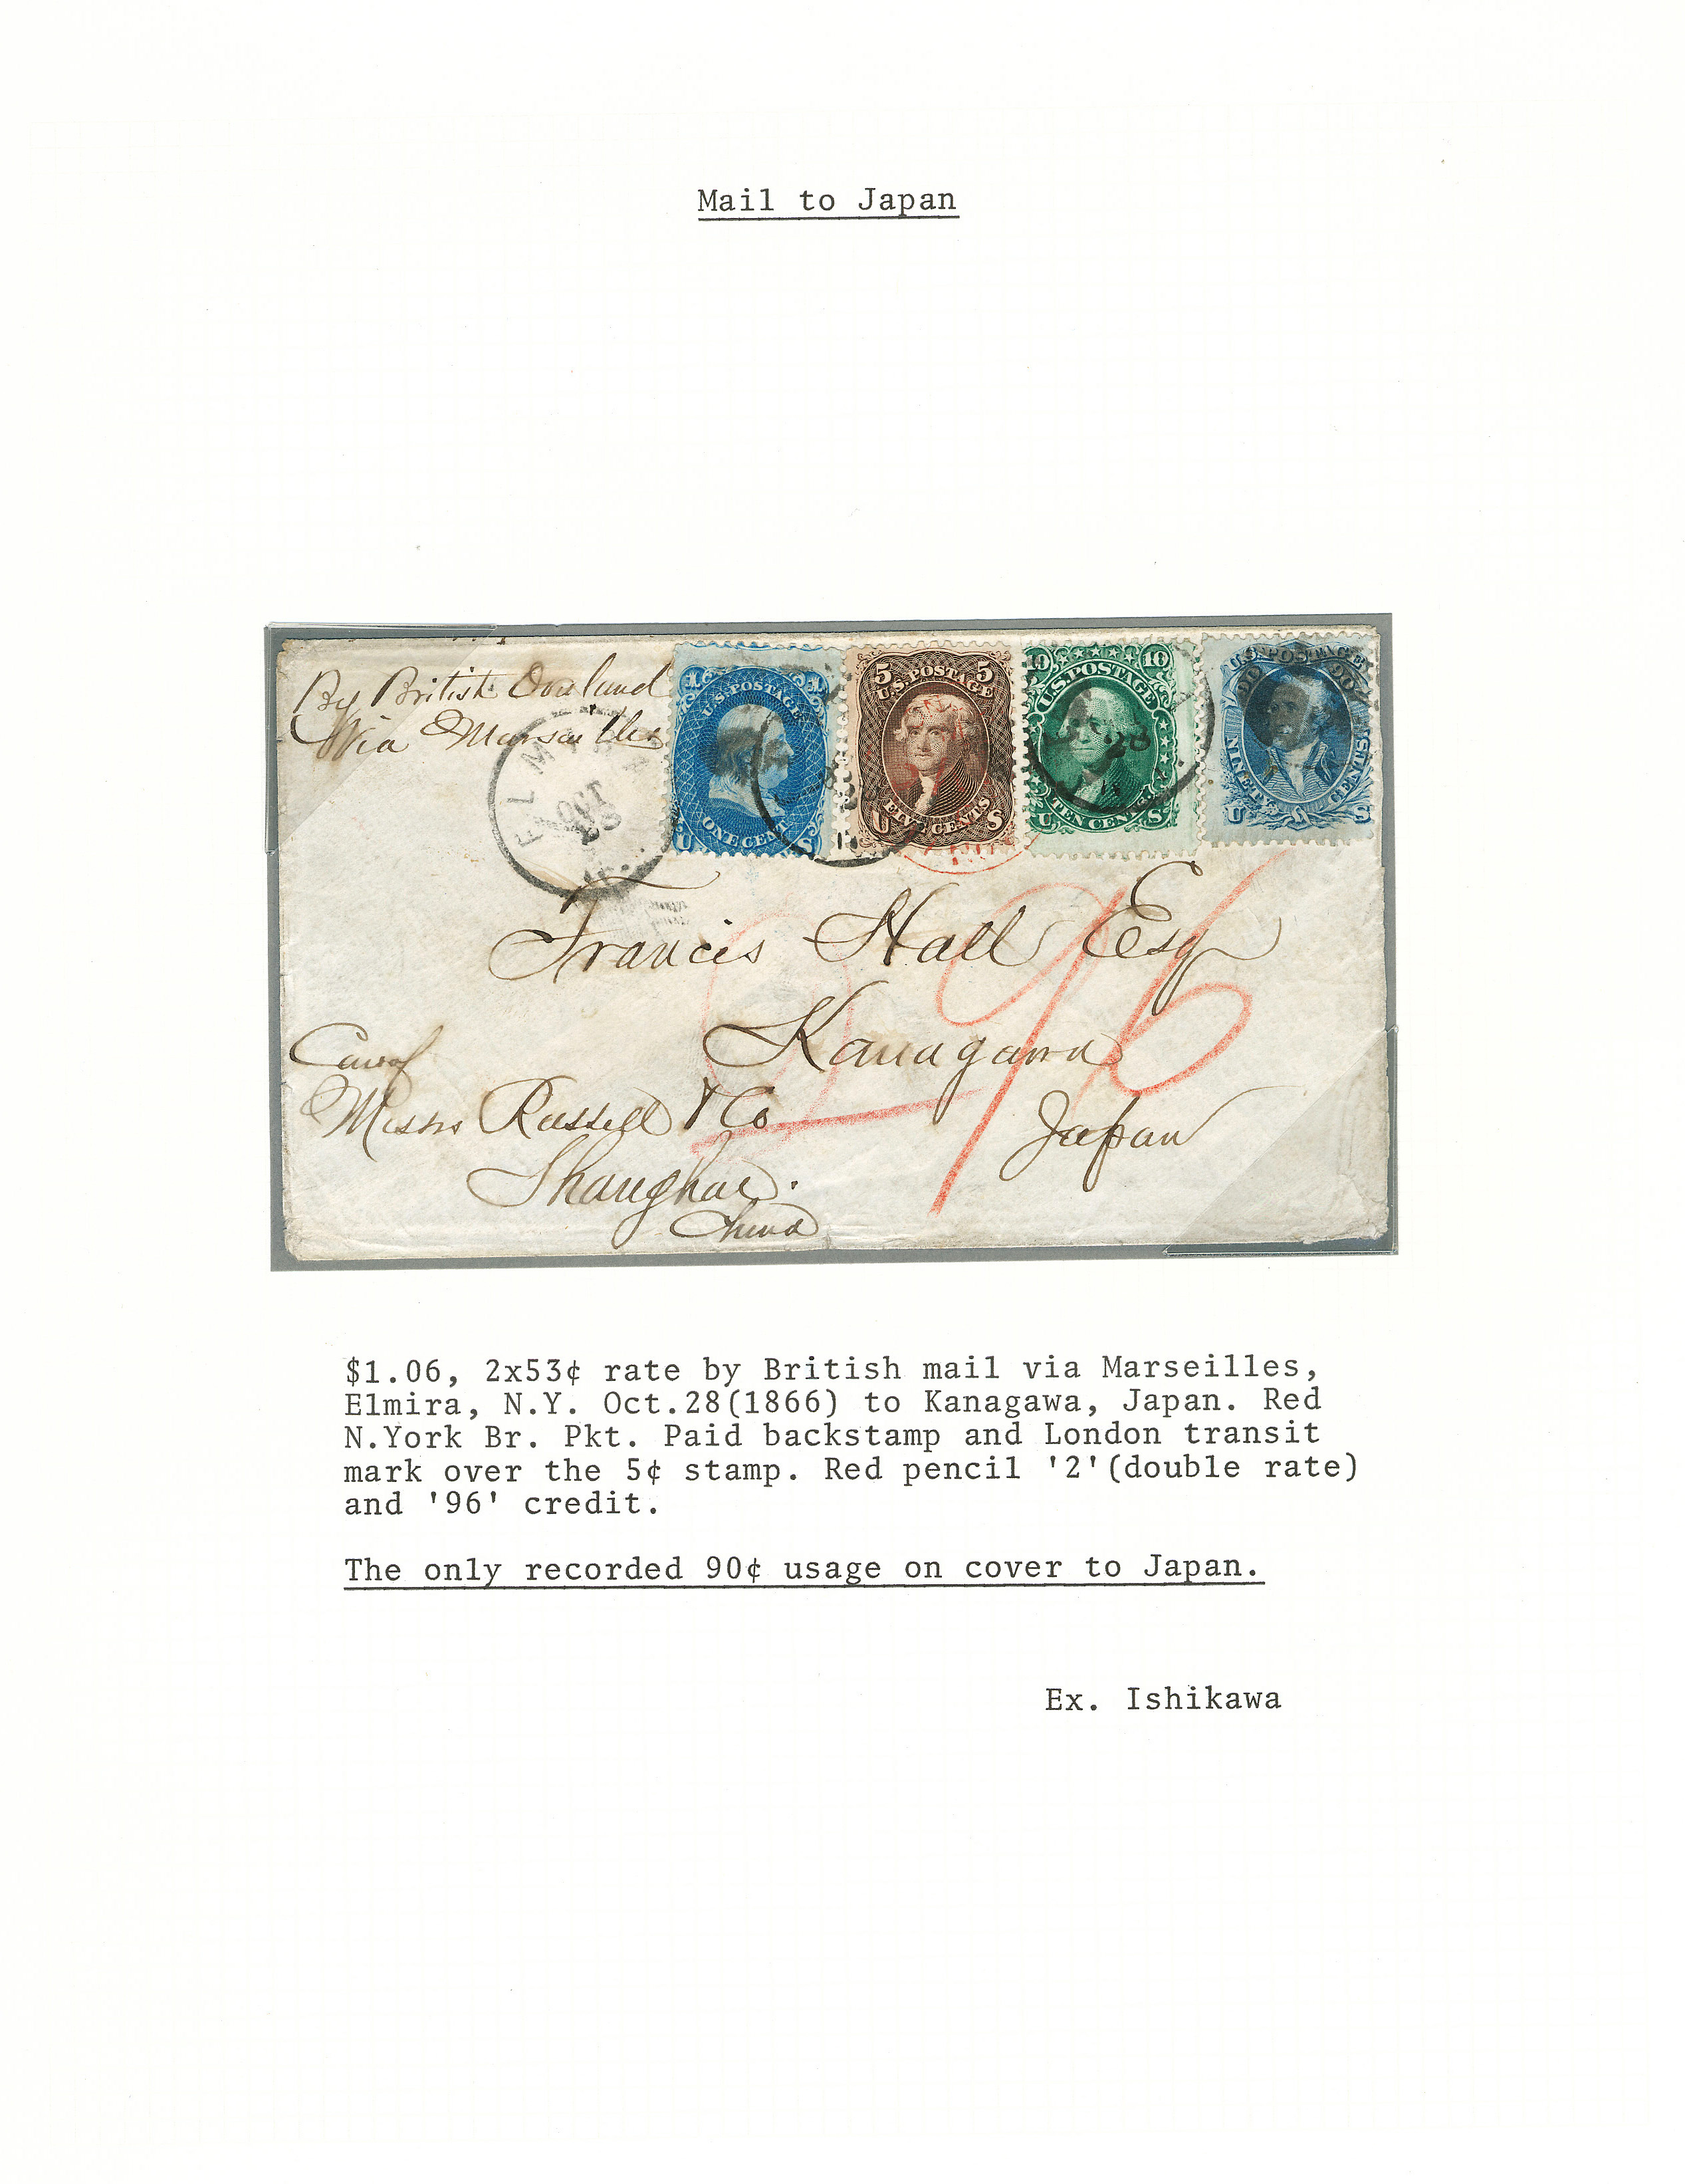 Mail to Japan
By British Overland
Via Marsailles
ELMIRA
OCT
28
1 1
U.S. POSTAGE
ONE CENT
U S
5 5
U.S. POSTAGE
FIVE CENTS
U S
10 10
U.S. POSTAGE
TEN CENTS
U S
U.S. POSTAGE
90 90
NINETY CENTS
U S
28
2 96
Francis Hall Esq
Kanagawa
Japan
Care of
Messrs Russell & Co
Shanghae.
China
$1.06, 2x53¢ rate by British mail via Marseilles,
Elmira, N.Y. Oct.28(1866) to Kanagawa, Japan. Red
N.York Br. Pkt. Paid backstamp and London transit
mark over the 5¢ stamp. Red pencil '2'(double rate)
and '96' credit.
The only recorded 90¢ usage on cover to Japan.
Ex. Ishikawa